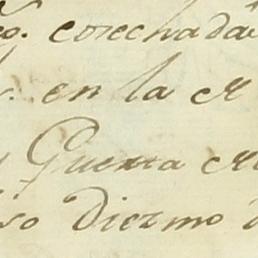 cosechada
en la M
Guerra
so Diezmo d